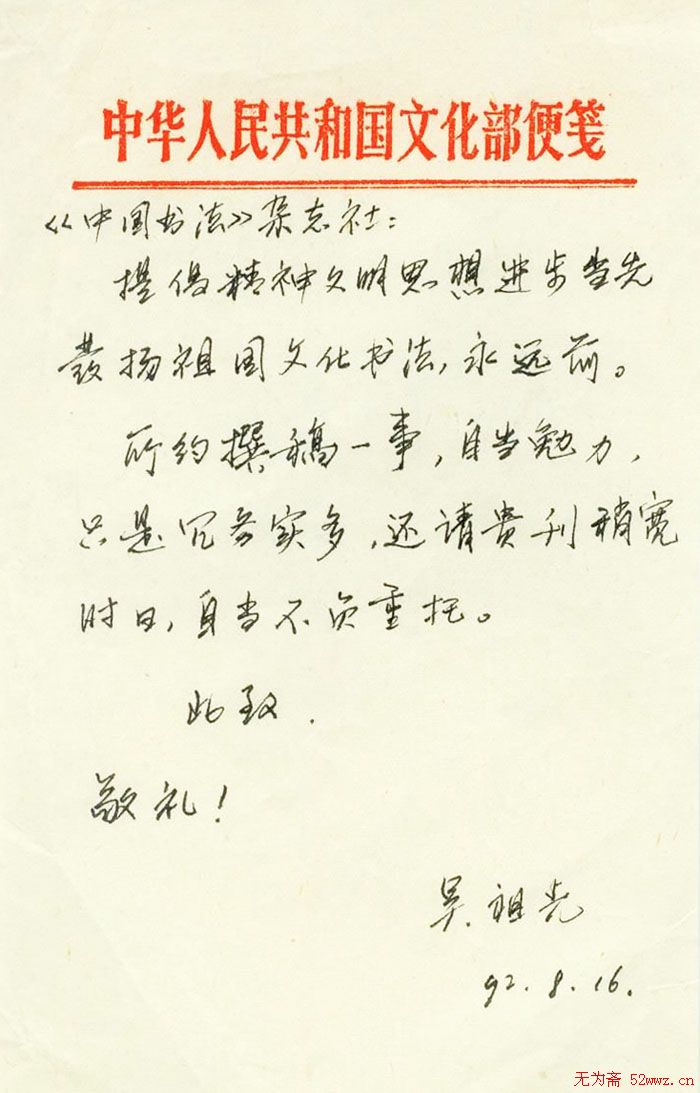 中华人民共和国文化部便笺
《中国书法》杂志社：
提倡精神文明思想进步当先
發扬祖国文化书法，永远前。
所约撰稿一事，自当勉力，
只是冗务实多，还请贵刊稍宽
时日，自当不负重托。
此致．
敬礼！
吴祖光
92.8.16.
无为斋 52wwz.cn